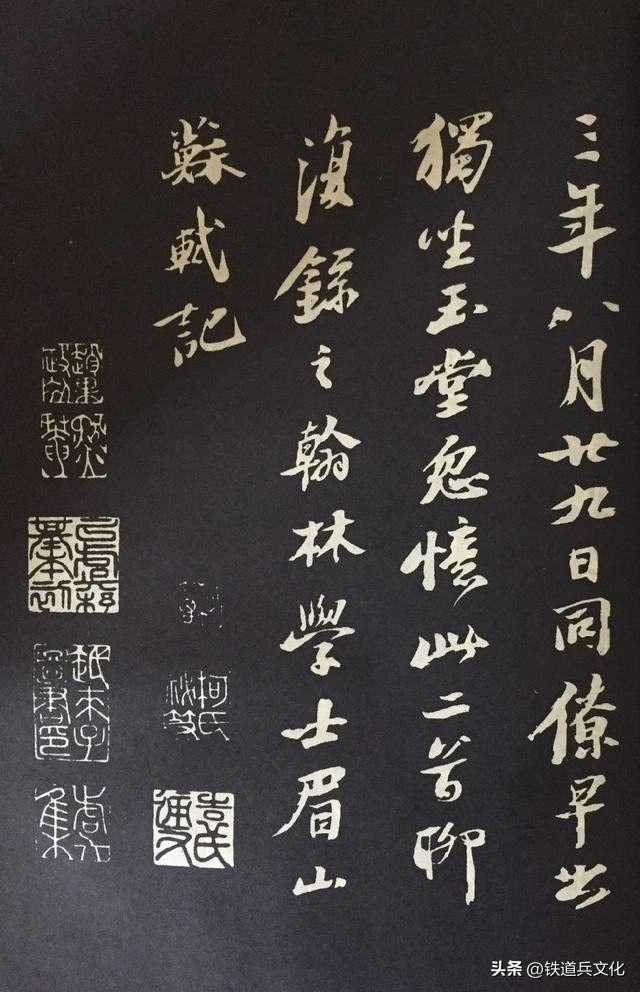 三年八月廿九日同僚早出
獨坐玉堂忽憶此二首聊
復錄之翰林學士眉山
蘇軾記
柯氏
頭条 @铁道兵文化